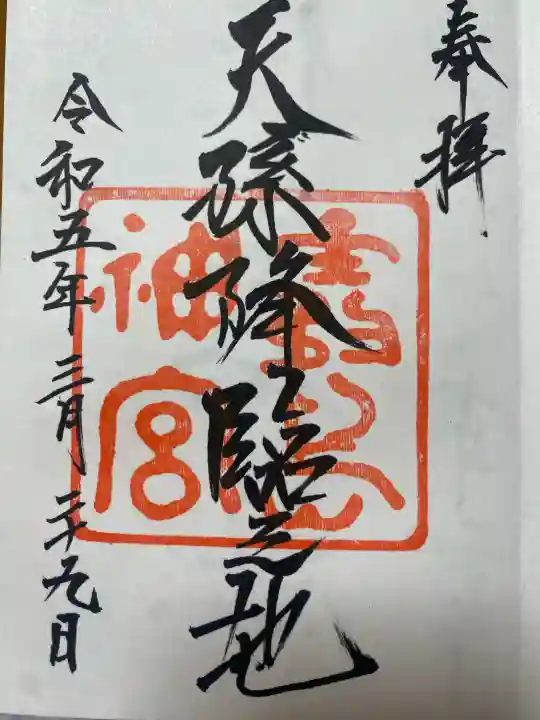 奉拝
天孫降臨之地
神宮
令和五年三月二十九日